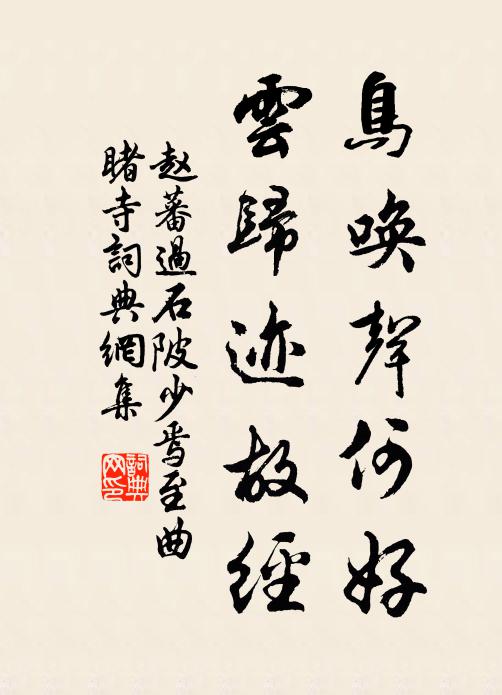 鳥喚聲何好
雲歸迹故經
赵蕃過石陂少焉至曲
睹寺詞典網集
詞典
网印